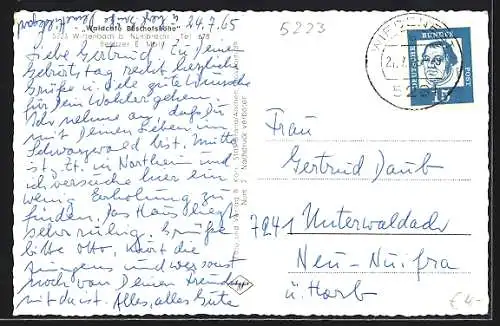 24.7.65
"Waldcafé Bischofshöhe"
5223 b. Nümbrecht, Tel.
Besitzer E.
Liebe Gertrud! Zu Deinem
Geburtstag recht herzliche
Grüße u. viele gute Wünsche
für Dein Wohlergehen.
Ich nehme an, daß Du
mit Deinen Lieben im
Schwarzwald bist.
z. Zt. in Northeim und
ich versuche hier ein
wenig Erholung zu
finden. Das Haus liegt
sehr ruhig. Grüße
bitte Otto, Kurt, die
Jungens und wer sonst
noch von Deinen Freunden
mit da ist. Alles, alles Gute
Nachdruck verboten
5223
DEUTSCHE BUNDESPOST
15
Frau
Gertrud Daub
7241 Unterwaldach
Neu-Nuifra
ü. Horb
€ 4,-